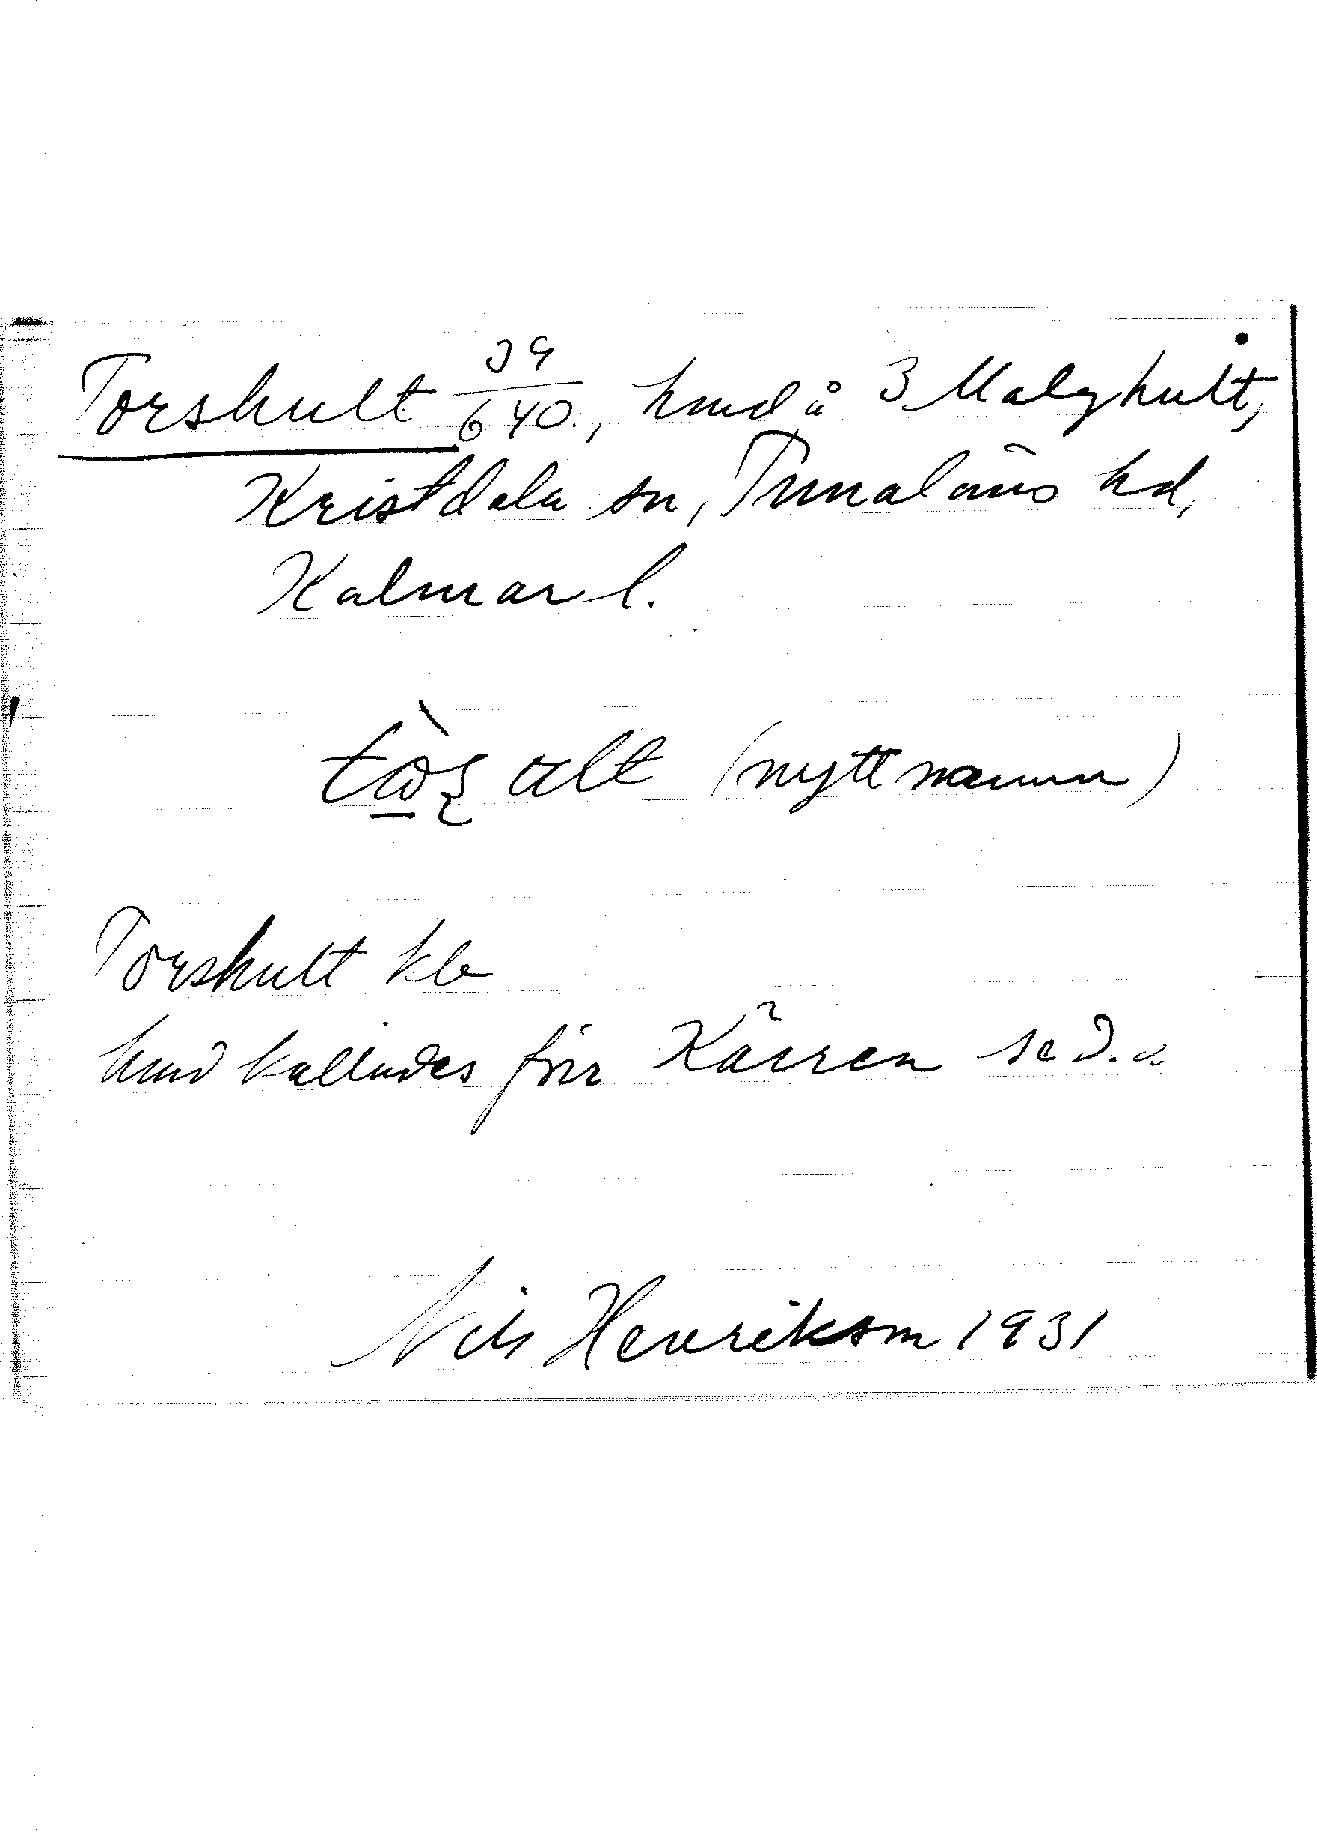 Torskult 39/640., hmd å 3 Malghult,
Kristdala sn, Tunaläns hd,
Kalmar l.
(nytt namn)
Torskult kla
hmd kallades förr Kärren se d.o
Nils Henrikson 1931